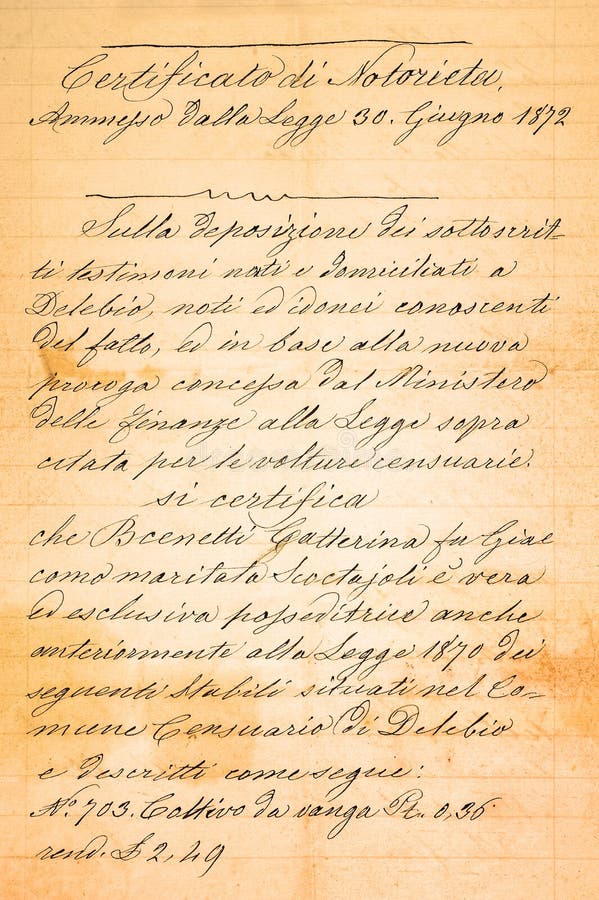 Certificato di Notorieta,
Ammesso dalla Legge 30. Giugno 1872
Sulla deposizione dei sottoscrit-
ti testimoni nati e domiciliati a
Delebio, noti ed idonei conoscenti
del fatto, ed in base alla nuova
proroga concessa dal Ministero
delle Finanze alla Legge sopra
citata per le volture censuarie.
si certifica
che Catterina fu Giac
como maritata è vera
ed esclusiva posseditrice anche
anteriormente alla Legge 1870 dei
seguenti Stabili situati nel Co-
mune Censuario di Delebio
e descritti come segue:
N.° 703. Coltivo da vanga Pt. 0,36
rend. £ 2,49